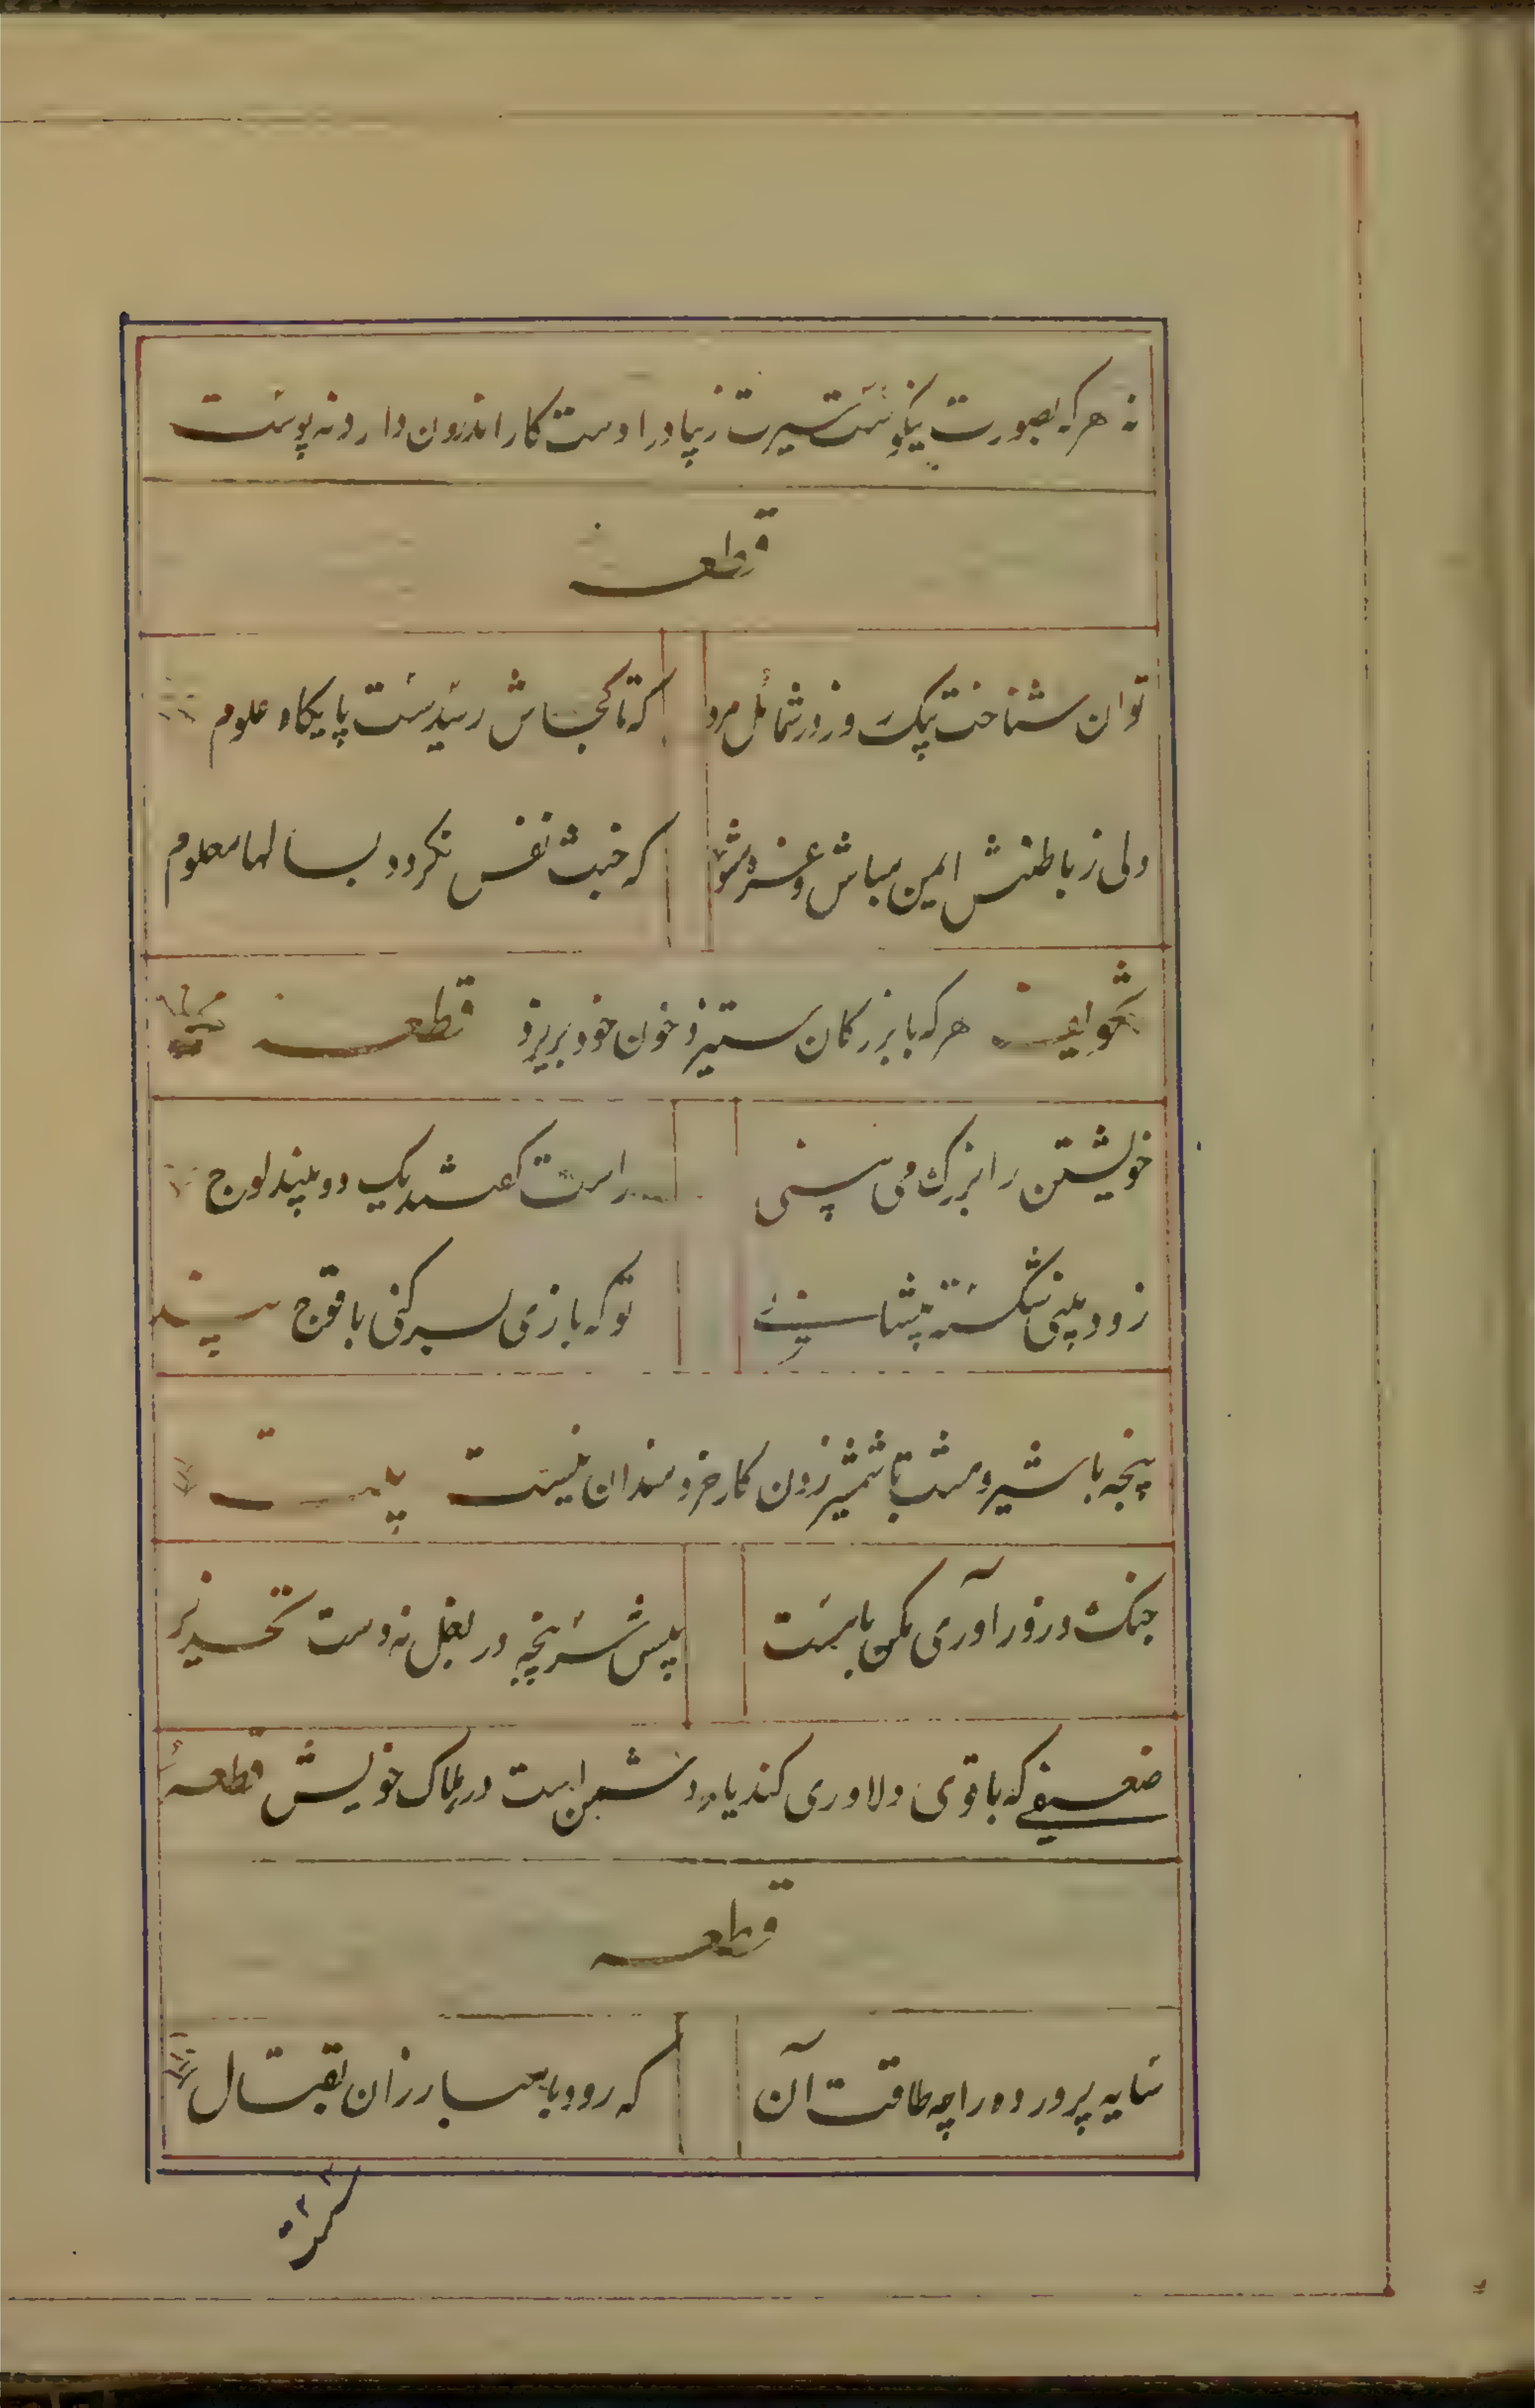 نه هرکه بصورت نیکوست سیرت زیبا در اوست کار اندرون دارد نه پوست
قطعه
توان شناخت بیک روز در شمائل مرد که تا کجاش رسیدست پایکاه علوم
ولی ز باطنش ایمن مباش و غره مشو که خبث نفس نکردد بسالها معلوم
هرکه با بزرکان ستیزد خون خود بریزد قطعه
خویشتن را بزرک می بینی راست کفتند یک دو بیند لوج
زود بینی شکسته پیشانی تو که بازی بسر کنی با قوج
پنجه با شیر و مشت با شمشیر زدن کار خردمندان نیست بیت
جنک و زورآوری مکن با مست پیش سرپنجه در بغل نه دست
ضعیفی که با قوی دلاوری کند یار دشمن است در هلاک خویش قطعه
قطعه
سایه پرورده را چه طاقت آن که رود با مبارزان بقتال